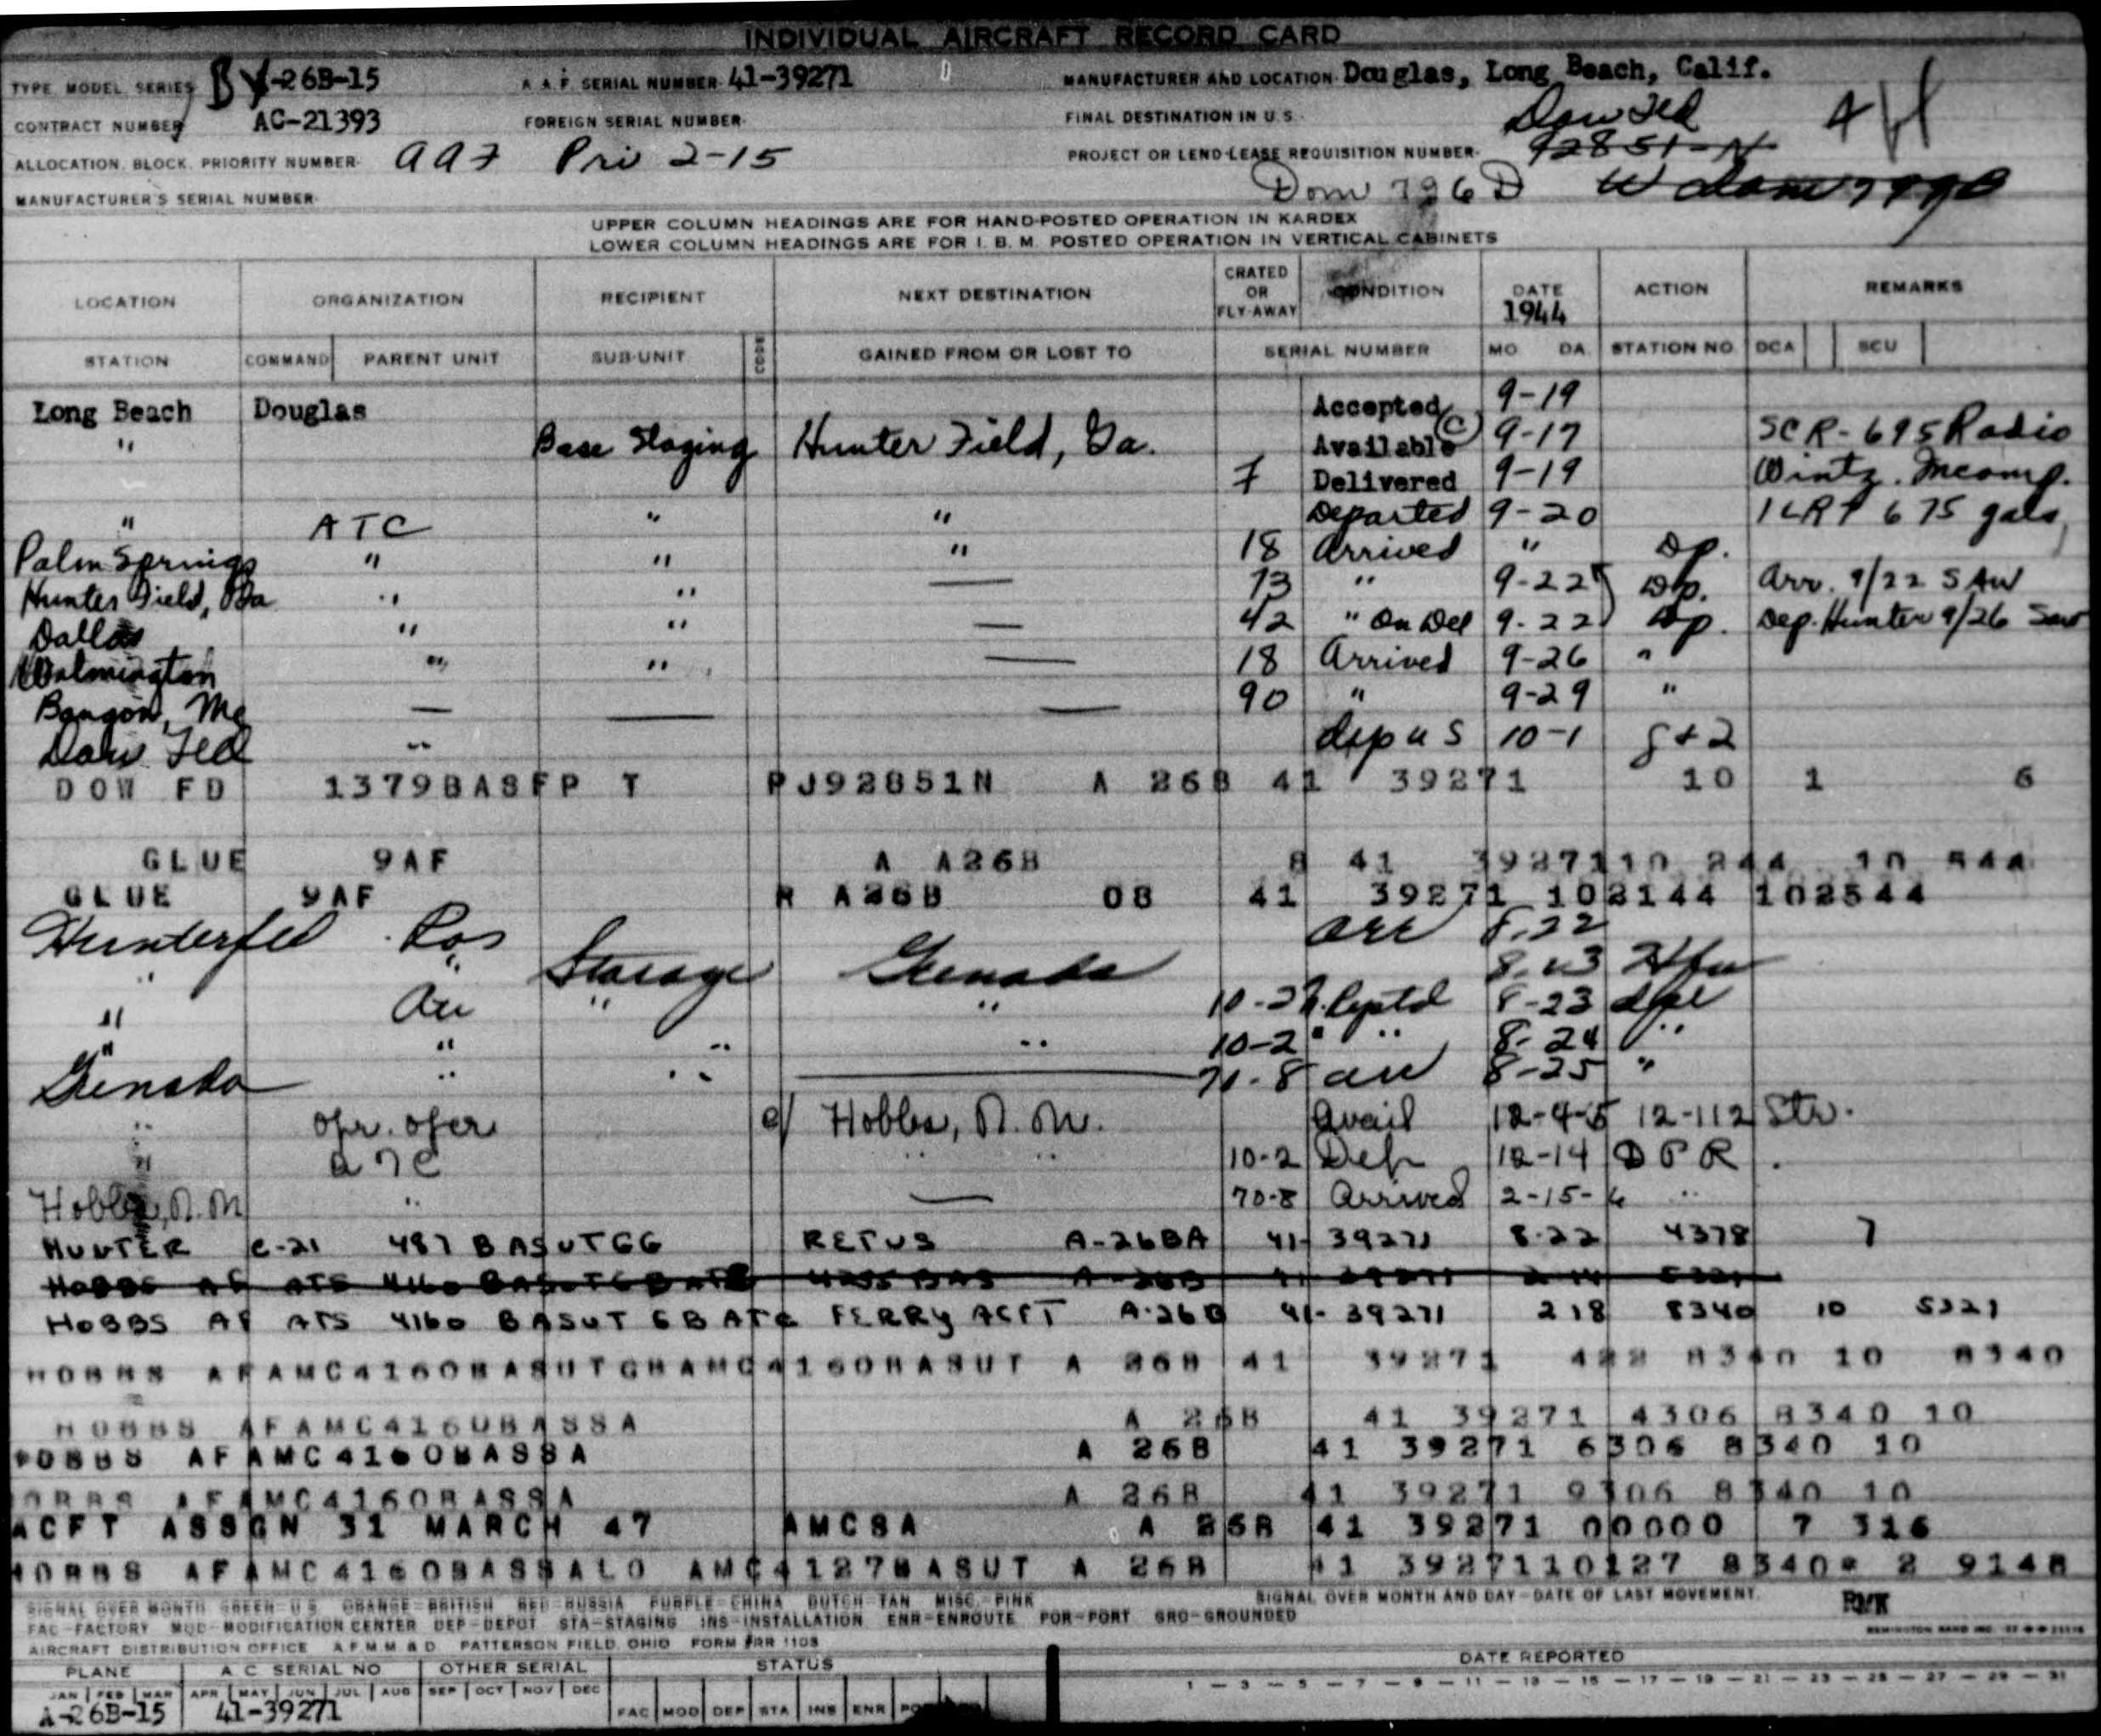 INDIVIDUAL AIRCRAFT RECORD CARD
TYPE, MODEL, SERIES B -26B-15 A. A. F. SERIAL NUMBER 41-39271 MANUFACTURER AND LOCATION Douglas, Long Beach, Calif.
CONTRACT NUMBER AC-21393 FOREIGN SERIAL NUMBER FINAL DESTINATION IN U. S. Dow Fld
ALLOCATION, BLOCK, PRIORITY NUMBER Pri 2-15 PROJECT OR LEND-LEASE REQUISITION NUMBER 92851-N
MANUFACTURER'S SERIAL NUMBER Dom 796D
UPPER COLUMN HEADINGS ARE FOR HAND-POSTED OPERATION IN KARDEX
LOWER COLUMN HEADINGS ARE FOR I. B. M. POSTED OPERATION IN VERTICAL CABINETS
LOCATION ORGANIZATION RECIPIENT NEXT DESTINATION CRATED OR FLY-AWAY CONDITION DATE 1944 ACTION REMARKS
STATION COMMAND PARENT UNIT SUB-UNIT CODE GAINED FROM OR LOST TO SERIAL NUMBER MO DA STATION NO DCA SCU
Long Beach Douglas Accepted 9-19
" Base Staging Hunter Field, Ga. Available (C) 9-17 SCR-695 Radio
7 Delivered 9-19 Wintz. Incomp.
" ATC " " Departed 9-20 675 gals
Palm Springs " " " 18 Arrived " Dp.
Hunter Field, Ga " " — 73 " 9-22 Dp. Arr. 9/22 SAW
Dallas " " — 42 " On Del 9-22 Dp. Dep. Hunter 9/26 Saw
Wilmington " " — 18 Arrived 9-26 "
Bangor, Me — — — 90 " 9-29 "
Dow Fld " dep U S 10-1
DOW FD 1379BASFP T PJ92851N A 26B 41 39271 10 1 6
GLUE 9AF A A26B 8 41 3927110 244 10 544
GLUE 9AF R A26B 08 41 39271 102144 102544
Hunterfld arr 8-22
" " Storage Grenada
" " " 10-2 8-23
" " " " 10-2 " " 8-24 "
Grenada " " — 70-8 arr 8-25 "
" opr. ofcr Hobbs, N. M. Avail 12-4-5 12-112 Str.
" ATC " " 10-2 Dep 12-14 D P R
Hobbs, N.M " — 70-8 Arrived 2-15-6 "
HUNTER C-21 487 BASUTGG RETUS A-26BA 41- 39271 8-22 4378 7
HOBBS AF ATS 4160 BASUT GB ATC FERRY ACFT A-26B 41- 39271 218 8340 10 5321
HOBBS AFAMC4160BASUTGBAMC4160BASUT A 26B 41 39271 422 8340 10 8340
HOBBS AFAMC4160BASSA A 26B 41 39271 4306 8340 10
HOBBS AFAMC4160BASSA A 26B 41 39271 6306 8340 10
HOBBS AFAMC4160BASSA A 26B 41 39271 9306 8340 10
ACFT ASSGN 31 MARCH 47 AMCSA A 26B 41 39271 00000 7 316
HOBBS AFAMC4160BASSALO AMC4127BASUT A 26B 41 3927110127 8340* 2 9148
SIGNAL OVER MONTH GREEN=U.S. ORANGE=BRITISH RED=RUSSIA PURPLE=CHINA DUTCH=TAN MISC.=PINK SIGNAL OVER MONTH AND DAY—DATE OF LAST MOVEMENT.
FAC=FACTORY MOD=MODIFICATION CENTER DEP=DEPOT STA=STAGING INS=INSTALLATION ENR=ENROUTE POR=PORT GRO=GROUNDED
AIRCRAFT DISTRIBUTION OFFICE A F M M & D PATTERSON FIELD, OHIO FORM #RR 1108
PLANE A C SERIAL NO OTHER SERIAL STATUS DATE REPORTED
JAN FEB MAR APR MAY JUN JUL AUG SEP OCT NOV DEC FAC MOD DEP STA INS ENR 1 — 3 — 5 — 7 — 9 — 11 — 13 — 15 — 17 — 19 — 21 — 23 — 25 — 27 — 29 — 31
A-26B-15 41-39271